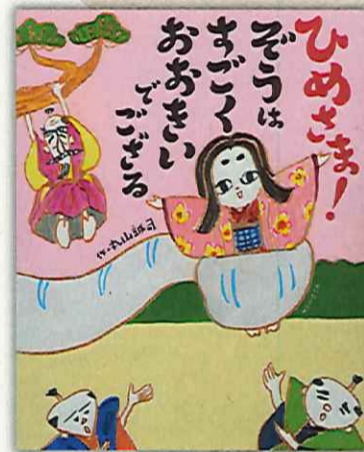 ひめさま!
ぞうは
すごく
おおきい
でござる
作・丸山誠司